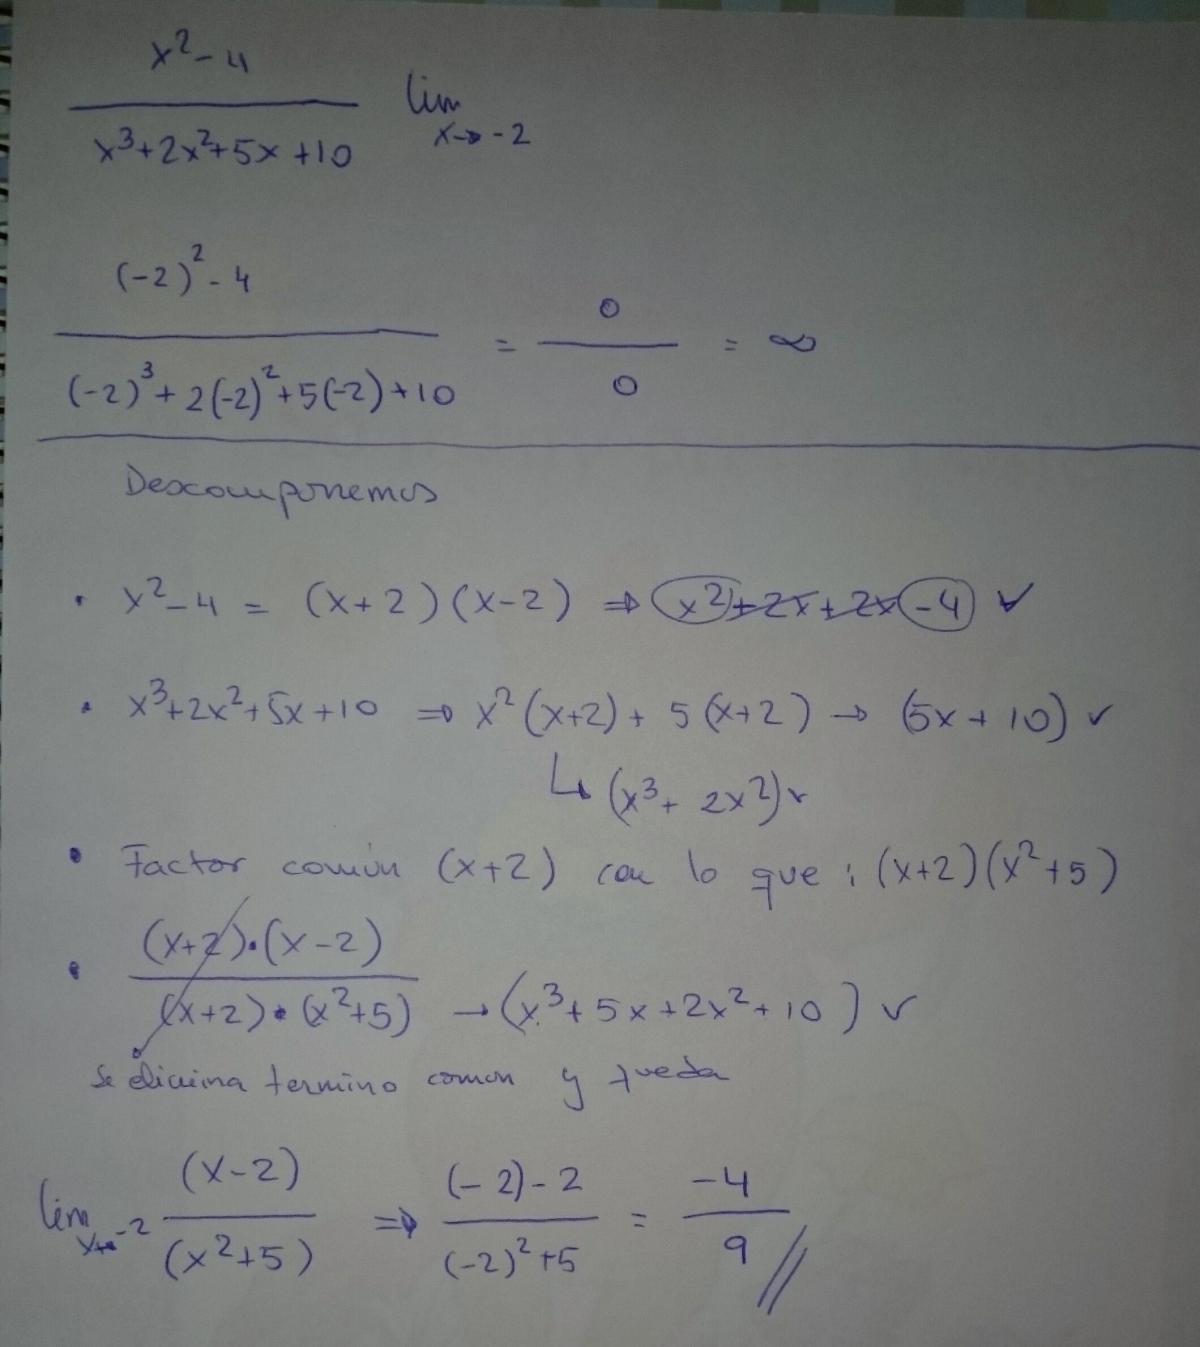 x²-4 / x³+2x²+5x+10 lim x→-2
(-2)²-4 / (-2)³+2(-2)²+5(-2)+10 = 0/0 = ∞
Descomponemos
• x²-4 = (x+2)(x-2) ⇒ x²+2x+2x-4 ✓
• x³+2x²+5x+10 ⇒ x²(x+2)+5(x+2) → (5x+10) ✓
↳ (x³+2x²) ✓
• Factor común (x+2) con lo que: (x+2)(x²+5)
• (x+2)·(x-2) / (x+2)·(x²+5) → (x³+5x+2x²+10) ✓
Se elimina termino comun y queda
lim x→-2 (x-2) / (x²+5) ⇒ (-2)-2 / (-2)²+5 = -4/9 //